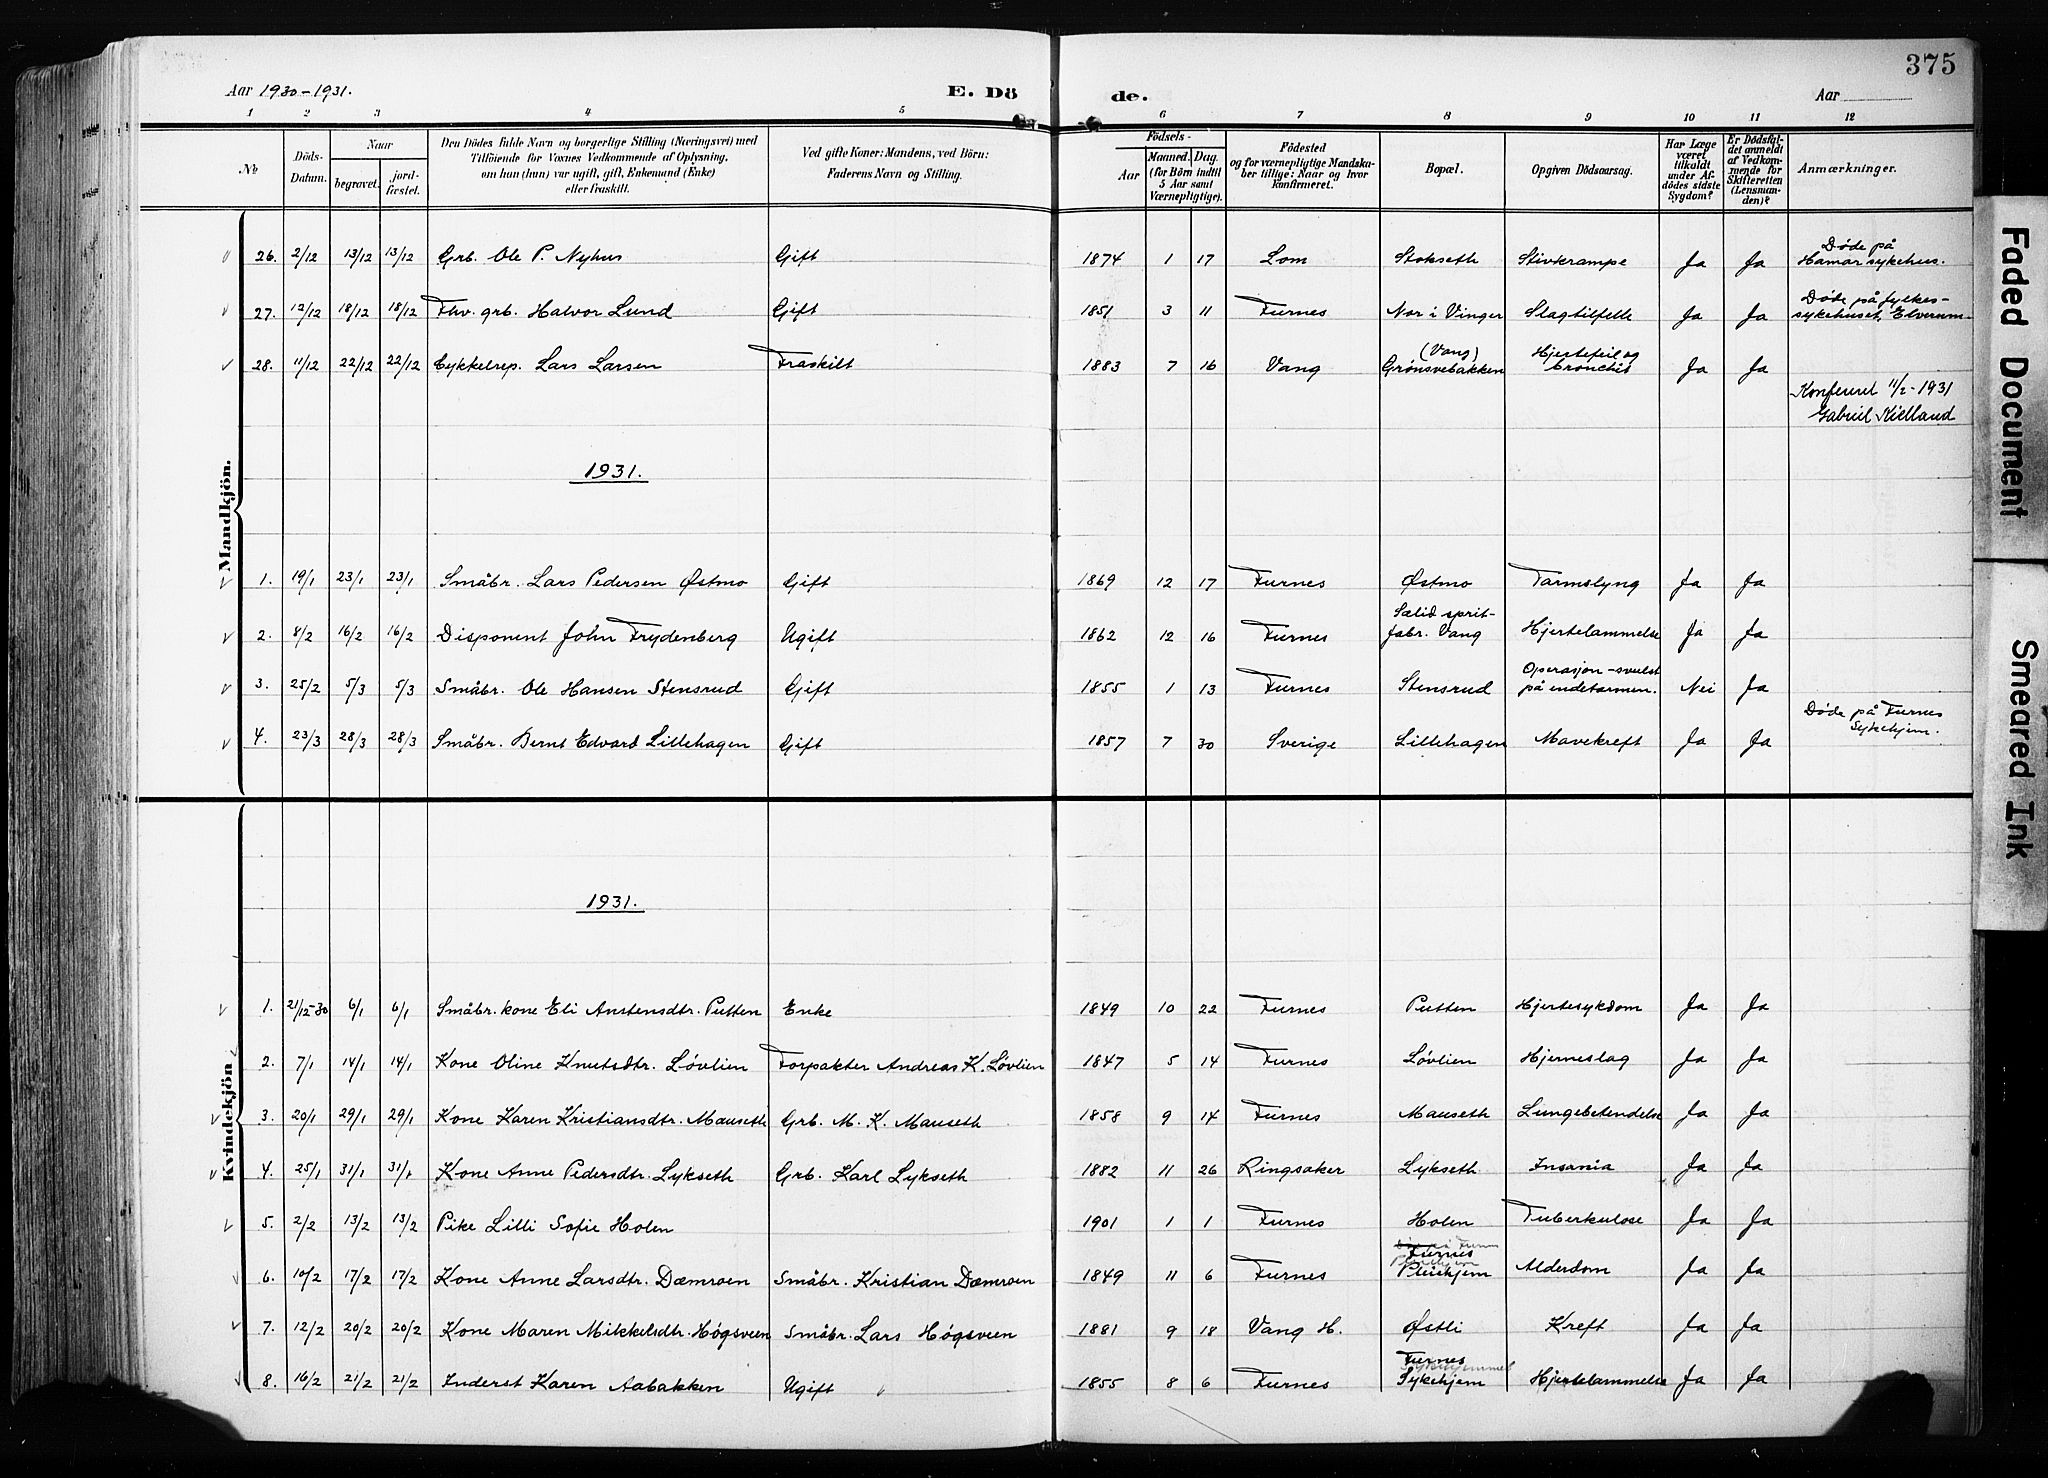 375
Aar 1930-1931.
E. Dö
de.
Aar
1 2 3 4 5 6 7 8 9 10 11 12
No
Döds-
Datum.
Naar
begravet.
jord-
fæstet.
Den Dödes fulde Navn og borgerlige Stilling (Næringsvei) med
Tilföiende for Voxnes Vedkommende af Oplysning,
om hun (han) var ugift, gift, Enkemand (Enke)
eller fraskilt.
Ved gifte Koner: Mandens, ved Börn:
Faderens Navn og Stilling.
Födsels-
Aar
Maaned. Dag.
(for Börn indtil
5 Aar samt
Værnepligtige).
Födested
og for værnepligtige Mandska-
ber tillige: Naar og hvor
konfirmeret.
Bopæl.
Opgiven Dödsaarsag.
Har Læge
været
tilkaldt
under Af-
dödes sidste
Sygdom?
Er Dödsfal-
det anmeldt
af Vedkom-
mende for
Skifteretten
(Lensman-
den)?
Anmærkninger.
Mandkjön.
26. 2/12 13/12 13/12 Grb. Ole P. Nyhus Gift 1874 1 17 Lom Stokseth Stivkrampe Ja Ja Døde på
Hamar sykehus.
27. 12/12 18/12 18/12 Fhv. grb. Halvor Lund Gift 1851 3 11 Furnes Nor i Vinger Slagtilfelle Ja Ja Døde på fylkes-
sykehuset, Elverum
28. 11/12 22/12 22/12 Cykkelrep. Lars Larsen Fraskilt 1883 7 16 Vang (Vang)
Grønsvebakken Hjertefeil og
bronchit Ja Ja
Konfereret 11/2-1931
Gabriel Kielland
1931.
1. 19/1 23/1 23/1 Småbr. Lars Pedersen Østmo Gift 1869 12 17 Furnes Østmo Tarmslyng Ja Ja
2. 8/2 16/2 16/2 Disponent John Frydenberg Ugift 1862 12 16 Furnes Sælid sprit-
fabr. Vang Hjertelammelse Ja Ja
3. 25/2 5/3 5/3 Småbr. Ole Hansen Stensrud Gift 1855 1 13 Furnes Stensrud Operasjon - svulst
på endetarmen. Nei Ja
4. 23/3 28/3 28/3 Småbr. Bernt Edvard Lillehagen Gift 1857 7 30 Sverige Lillehagen Mavekreft Ja Ja Døde på Furnes
Sykehjem.
Kvindekjön
1931.
1. 21/12-30 6/1 6/1 Småbr. kone Eli Anstensdtr. Putten Enke 1849 10 22 Furnes Putten Hjertesykdom Ja Ja
2. 7/1 14/1 14/1 Kone Oline Knutsdtr. Løvlien Forpakter Andreas K. Løvlien 1847 5 14 Furnes Løvlien Hjerneslag Ja Ja
3. 20/1 29/1 29/1 Kone Karen Kristiansdtr. Mauseth Grb. M. K. Mauseth 1858 9 14 Furnes Mauseth Lungebetendelse Ja Ja
4. 25/1 31/1 31/1 Kone Anne Pedersdtr. Lykseth Grb. Karl Lykseth 1882 11 26 Ringsaker Lykseth Insania Ja Ja
5. 2/2 13/2 13/2 Pike Lilli Sofie Holen 1901 1 1 Furnes Holen Tuberkulose Ja Ja
6. 10/2 17/2 17/2 Kone Anne Larsdtr. Dæmroen Småbr. Kristian Dæmroen 1849 11 6 Furnes Furnes
Pleiehjem Alderdom Ja Ja
7. 12/2 20/2 20/2 Kone Maren Mikkelsdtr. Høgsveen Småbr. Lars Høgsveen 1881 9 18 Vang H. Østli Kreft Ja Ja
8. 16/2 21/2 21/2 Inderst Karen Aabakken Ugift 1855 8 6 Furnes Furnes
Sykehjem Hjertelammelse Ja Ja
Faded Document
Smeared Ink